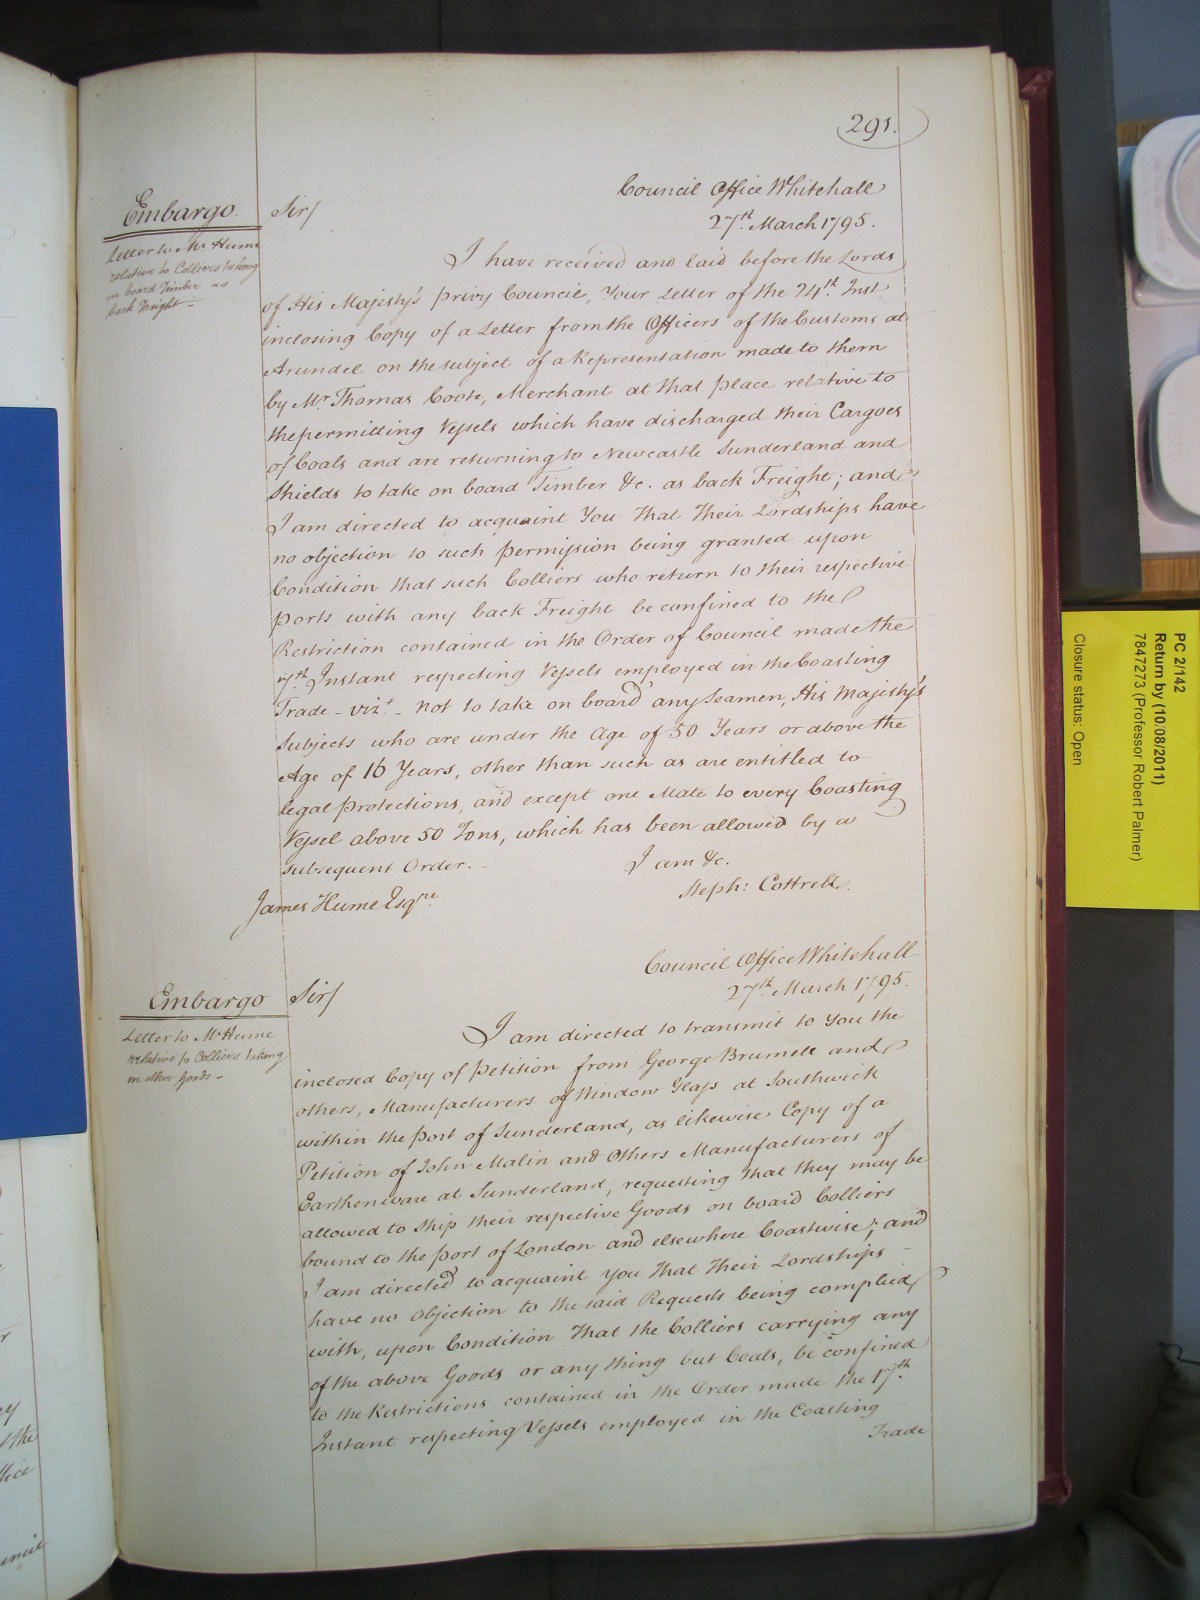 291.
Council Office Whitehall
27th. March 1795.
Embargo.
Letter to Mr. Hume
relative to Colliers taking
on board Timber as
back Freight -
Sir/
I have received and laid before the Lords
of His Majesty's privy Council, Your Letter of the 24th. Inst.
inclosing Copy of a Letter from the Officers of the Customs at
Arundel on the subject of a Representation made to them
by Mr. Thomas Coote, Merchant at that place relative to
the permitting Vessels which have discharged their Cargoes
of Coals and are returning to Newcastle Sunderland and
Shields to take on board Timber &c. as back Freight; and
I am directed to acquaint You that Their Lordships have
no objection to such permission being granted upon
Condition that such Colliers who return to their respective
ports with any back Freight be confined to the
Restriction contained in the Order of Council made the
17th. Instant respecting Vessels employed in the Coasting
Trade - vizt. - not to take on board any Seamen, His Majesty's
Subjects who are under the Age of 50 Years or above the
Age of 16 Years, other than such as are entitled to
legal protections, and except one Mate to every Coasting
Vessel above 50 Tons, which has been allowed by a
subsequent Order. -
I am &c.
Steph: Cottrell.
James Hume Esqre.
Council Office Whitehall
27th. March 1795.
Embargo
Letter to Mr Hume
relative to Colliers taking
in other Goods -
Sir/
I am directed to transmit to You the
inclosed Copy of Petition from George Brumell and
others, Manufacturers of Window Glass at Southwick
within the Port of Sunderland, as likewise Copy of a
Petition of John Malin and Others Manufacturers of
Earthenware at Sunderland, requesting that they may be
allowed to ship their respective Goods on board Colliers
bound to the Port of London and elsewhere Coastwise; and
I am directed to acquaint you that Their Lordships -
have no Objection to the said Requests being complied
with, upon Condition that the Colliers carrying any
of the above Goods or any thing but Coals, be confined
to the Restrictions contained in the Order made the 17th.
Instant respecting Vessels employed in the Coasting
Trade
PC 2/142
Return by (10/08/2011)
7847273 (Professor Robert Palmer)
Closure status: Open